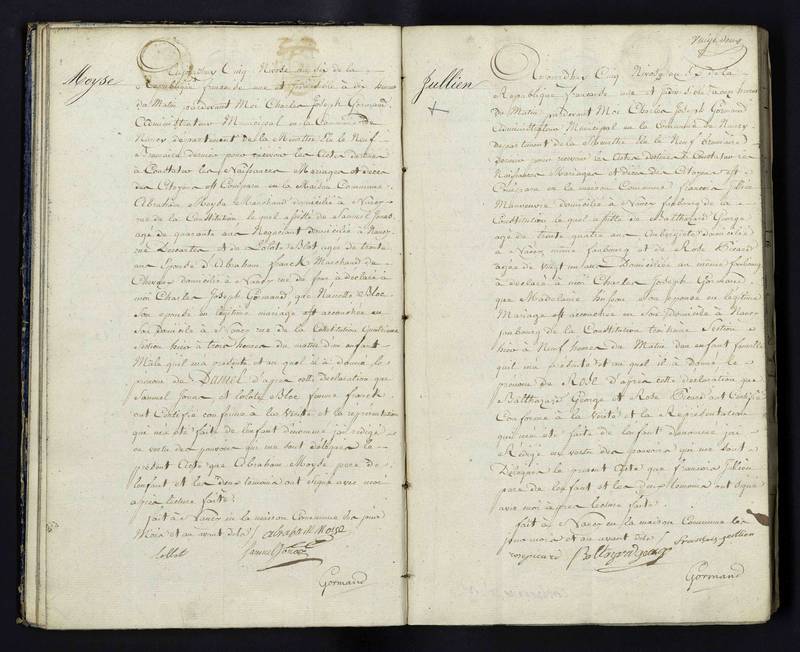 Moyse
Aujourdhuy Cinq Nivose an six de la
Republique francaise une et indivisible à dix heures
du Matin pardevant Moi Charles Joseph Gormand
Administrateur Municipal en la Commune de
Nancy departement de la Meurthe Elu le Neuf
Brumaire dernier pour recevoir les Actes destinés
à Constater les Naissances Mariages et décès
des Citoyens est Comparu en la Maison Commune
Abraham Moyse Marchand domicilié à Nancy
rue de la Constitution lequel assisté de Samuel Jonas
agé de quarante ans Negociant domicilié à Nancy
rue et de Lolotte Bloc agée de trente
ans Epouse d'Abraham franck Marchand de
Chevaux domicilié à Nancy rue du four à déclaré à
moi Charles Joseph Gormand que Nanette Bloc
Son epouse en legitime mariage est accouchée en
Son domicile à Nancy rue de la Constitution
Section hier à trois heures du matin d'un enfant
Male quil ma presenté et au quel il à donné le
prenom de Daniel d'après cette déclaration que
Samuel Jonas et Lolotte Bloc femme franck
ont Certifié conforme à la verité et la representation
qui m'a été faite de l'enfant denommé j'ai redigé
en vertu des pouvoirs qui me sont délegués le
présent Acte que Abraham Moyse pere de
l'enfant et les deux temoins ont signé avec moi
après lecture faite.
fait à Nancy en la maison Commune les jour
Mois et an avant dits Abraham Moise
Lollot Samuel Jonas
Gormand
Vingt deux
Jullien
Aujourdhuy Cinq Nivose an 6 de la
Republique francaise une et indivisible à onze heures
du Matin pardevant Moi Charles Joseph Gormand
Administrateur Municipal en la Commune de Nancy
departement de la Meurthe Elu le Neuf brumaire
dernier pour recevoir les Actes destinés à Constater les
Naissances Mariages et décès des Citoyens est
Comparu en la maison Commune francois Jullien
Manoeuvre domicilié à Nancy faubourg de la
Constitution lequel assisté de Balthazard George
agé de trente quatre ans domicilié
à Nancy même faubourg et de Rose Picard
agée de vingt un ans Domiciliée au même faubourg
à déclaré à moi Charles Joseph Gormand
que Madelaine Son epouse en légitime
Mariage est accouchée en Son domicile à Nancy
faubourg de la Constitution Section
hier à Neuf heures du Matin d'un enfant femelle
quil ma présenté et au quel il à Donné le
prenom de Rose d'après cette déclaration que
Balthazard George et Rose Picard ont Certifié
Conforme à la verité et la Représentation
qui m'a été faite de l'enfant denommé j'ai
Rédigé en vertu des pouvoirs qui me sont
Délegués le présent Acte que francois Jullien
pere de l'enfant et les deux temoins ont signé
avec moi après lecture faite.
fait à Nancy en la maison Commune les
jour mois et an avant dits francois jullien
Gormand